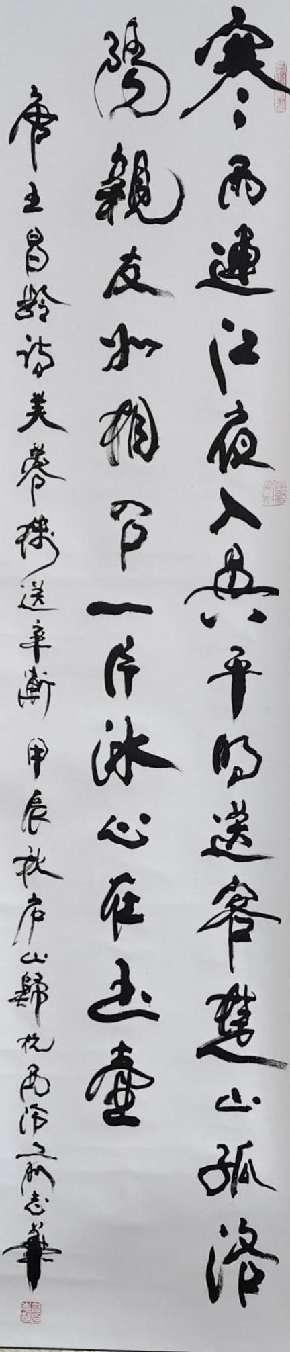 寒雨連江夜入吳平明送客楚山孤洛
陽親友如相問一片冰心在玉壺
唐王昌齡詩芙蓉樓送辛漸 甲辰秋 山歸 志華